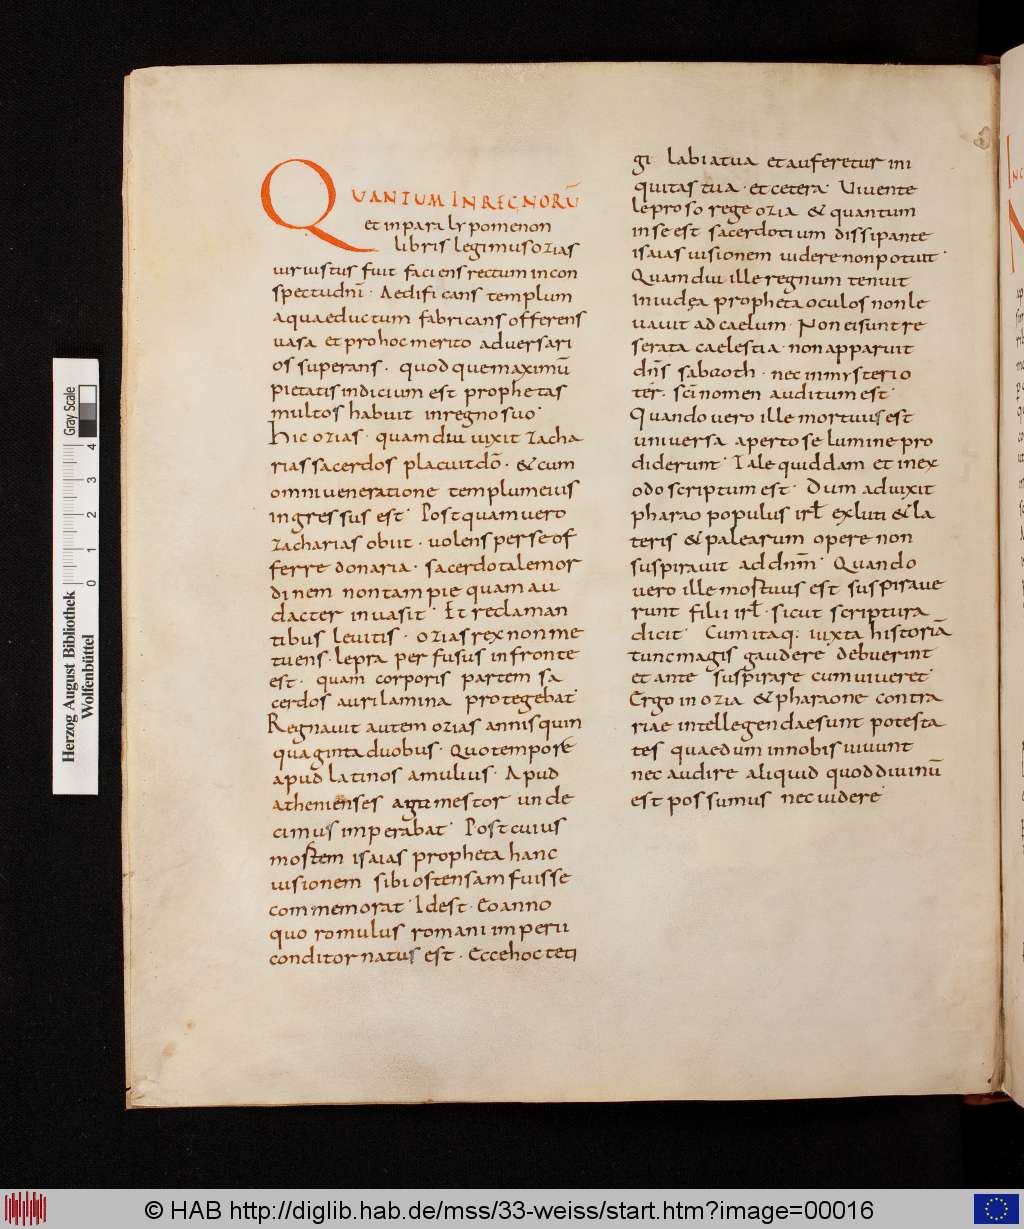 QUANTUM IN REGNORŪ
et in paralypomenon
libris legimus ozias
uir iustus fuit faciens rectum in con
spectu dn̄i · Aedificans templum
aquaeductum fabricans offerens
uasa et pro hoc merito adversari
os superans · quod que maximū
pietatis indicium est prophetas
multos habuit in regno suo ·
hic ozias · quamdiu uixit zacha
rias sacerdos placuit dō · & cum
omni ueneratione templum eius
ingressus est · Postquam uero
zacharias obiit · uolens per se of
ferre donaria · sacerdotalem or
dinem non tam pie quam au
dacter inuasit · Et reclaman
tibus leuitis · ozias rex non me
tuens · lepra perfusus in fronte
est · quam corporis partem sa
cerdos auri lamina protegebat
Regnauit autem ozias annis quin
quaginta duobus · Quo tempore
apud latinos amulius · Apud
athenienses agamestor unde
cimus imperabat · Post cuius
mortem isaias propheta hanc
uisionem sibi ostensam fuisse
commemorat · Idest · Eo anno
quo romulus romani imperii
conditor natus est · Ecce hoc teti
git labia tua et auferetur ini
quitas tua · et cetera · Uiuente
leproso rege ozia & quantum
in se est sacerdotium dissipante
isaias uisionem uidere non potuit ·
Quamdiu ille regnum tenuit
in iudęa propheta oculos non le
uauit ad caelum · Non ei sunt re
serata caelestia · non apparuit
dn̄s sabaoth · nec in mysterio
ter · sc̄i nomen auditum est ·
Quando uero ille mortuus est
uniuersa aperto se lumine pro
diderunt · Tale quiddam et in ex
odo scriptum est · Dum aduixit
pharao populus isrl̄ ex luti & la
teris & palearum opere non
suspirauit ad dn̄m · Quando
uero ille mortuus est suspiraue
runt filii isrl̄ · sicut scriptura
dicit · Cum itaq; iuxta historiā
tunc magis gaudere debuerint
et ante suspirare cum uiueret ·
Ergo in ozia & pharaone contra
riae intellegendae sunt potesta
tes quae dum in nobis uiuunt
nec audire aliquid quod diuinū
est possumus nec uidere ·
Herzog August Bibliothek
Wolfenbüttel
0 1 2 3 4
Gray Scale
© HAB http://diglib.hab.de/mss/33-weiss/start.htm?image=00016